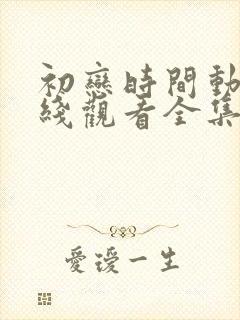 初戀時間動
綫觀看全集
愛璦一生